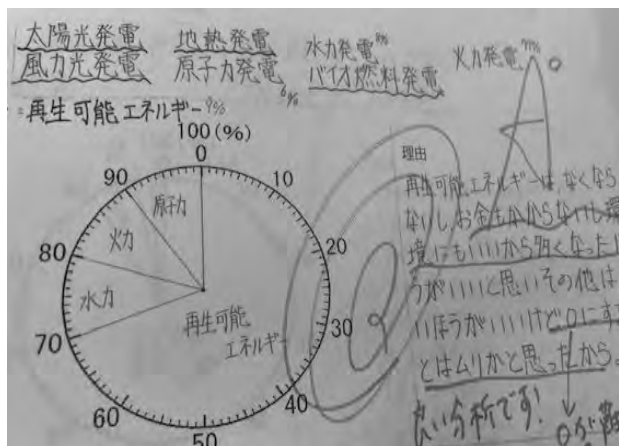 太陽光発電 地熱発電 水力発電8% 火力発電77%
風力光発電 原子力発電6% バイオ燃料発電
=再生可能エネルギー9%
100(%)
0
10
20
30
40
50
60
70
80
90
原子力
火力
水力
再生可能
エネルギー
理由
再生可能エネルギーは、なくなら
ないし、お金もかからないし環
境にもいいから多くなったほ
うがいいと思いその他は
いほうがいいけど0にするこ
とはムリかと思ったから。
良い分析です!
0が難